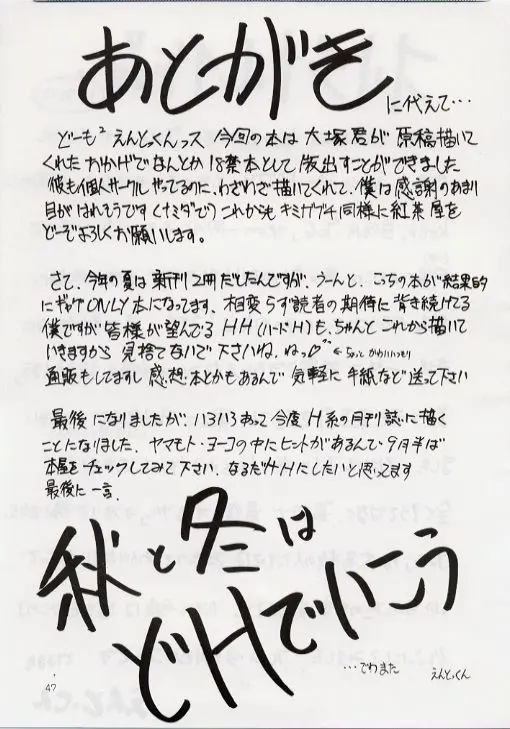 あとがき
に代えて…
どーも² えんどっくんっス 今回の本は大塚君が原稿描いて
くれたおかげでなんとか18禁本として版出すことができました
彼も個人サークルやってるのに、わざわざ描いてくれて、僕は感謝のあまり
目がはれそうです(ナミダで) これからも キミガブチ同様に紅茶屋を
どーぞよろしくお願いします。
さて、今年の夏は新刊2冊だしたんですが、うーんと、こっちの本が結果的
にギャグONLY本になってます、相変らず読者の期待に背き続けてる
僕ですが皆様が望んでるHH(ハードH)も、ちゃんとこれから描いて
いきますから 見捨てないで下さいね。ね。♡ ←ちょっとかわいいつもり
通販もしてますし 感想本とかもあるんで 気軽に手紙など送って下さい
最後になりましたが、いろいろあって今度H系の月刊誌に描く
ことになりました、ヤマモト・ヨーコの中にヒントがあるんで・9月半ば
本屋をチェックしてみて下さい、なるだけHにしたいと思ってます
最後に一言、
秋と冬は
どHでいこう
…でわまた
えんどっくん
47